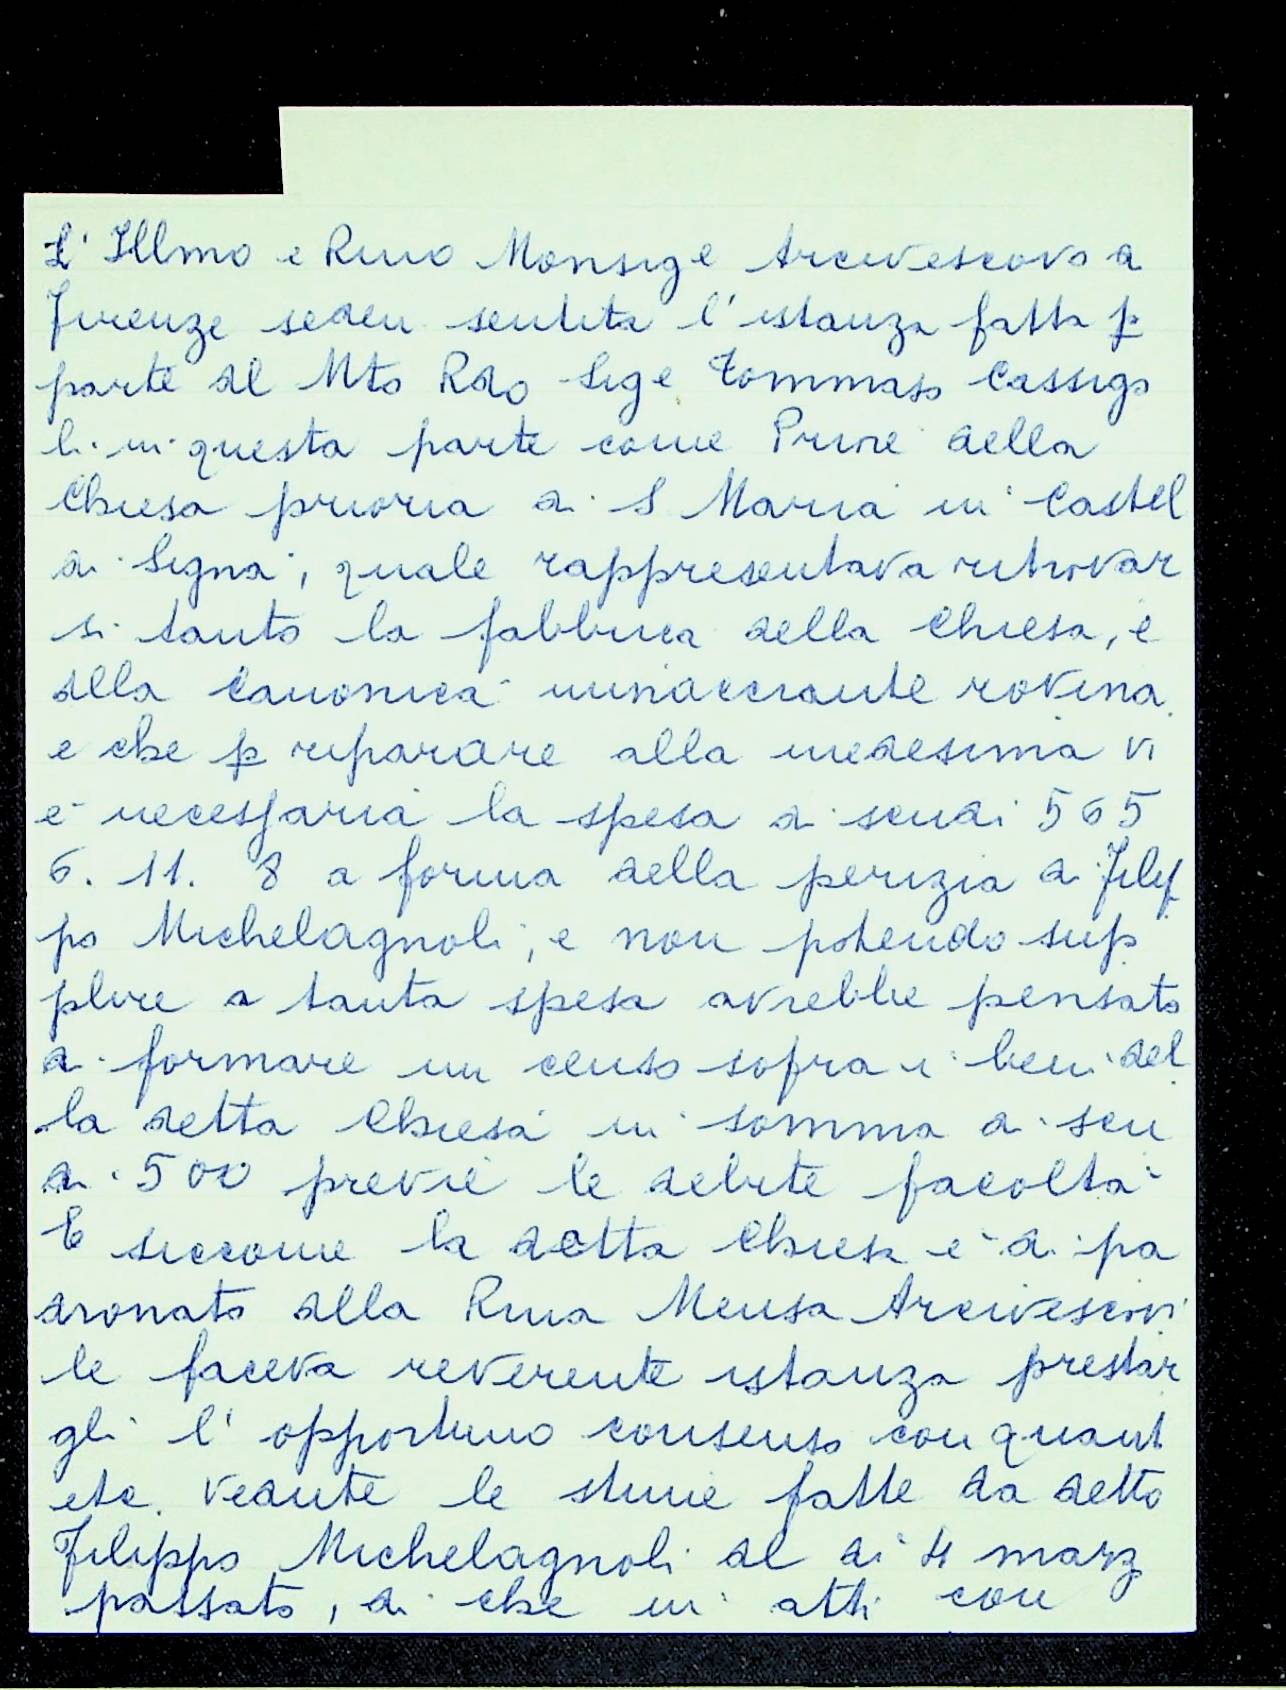 L' Illmo e Rmo Monsige Arcivescovo di
Firenze sedeu sentita l'istanza fatta p
parte del Mto Rdo Sige Tommaso Cassigo
li in questa parte come Priore della
Chiesa prioria di S Maria in Castel
di Signa, quale rappresentava ritrovar
si tanto la fabbrica della Chiesa, e
della Canonica minacciante rovina
e che p riparare alla medesima vi
è necessaria la spesa di scudi 565
6. 11. 8 a forma della perizia di Filip
po Michelagnoli, e non potendo sup
plire a tanta spesa avrebbe pensato
di formare un censo sopra i beni del
la detta Chiesa in somma di scu
di 500 previe le debite facoltà
E siccome la detta Chiesa è di pa
dronato della Rma Mensa Arcivescovi
le faceva reverente istanza prestar
gli l' opportuno consenso con quant
etc. Vedute le stime fatte da detto
Filippo Michelagnoli del di 4 marz
passato, di che in atti con